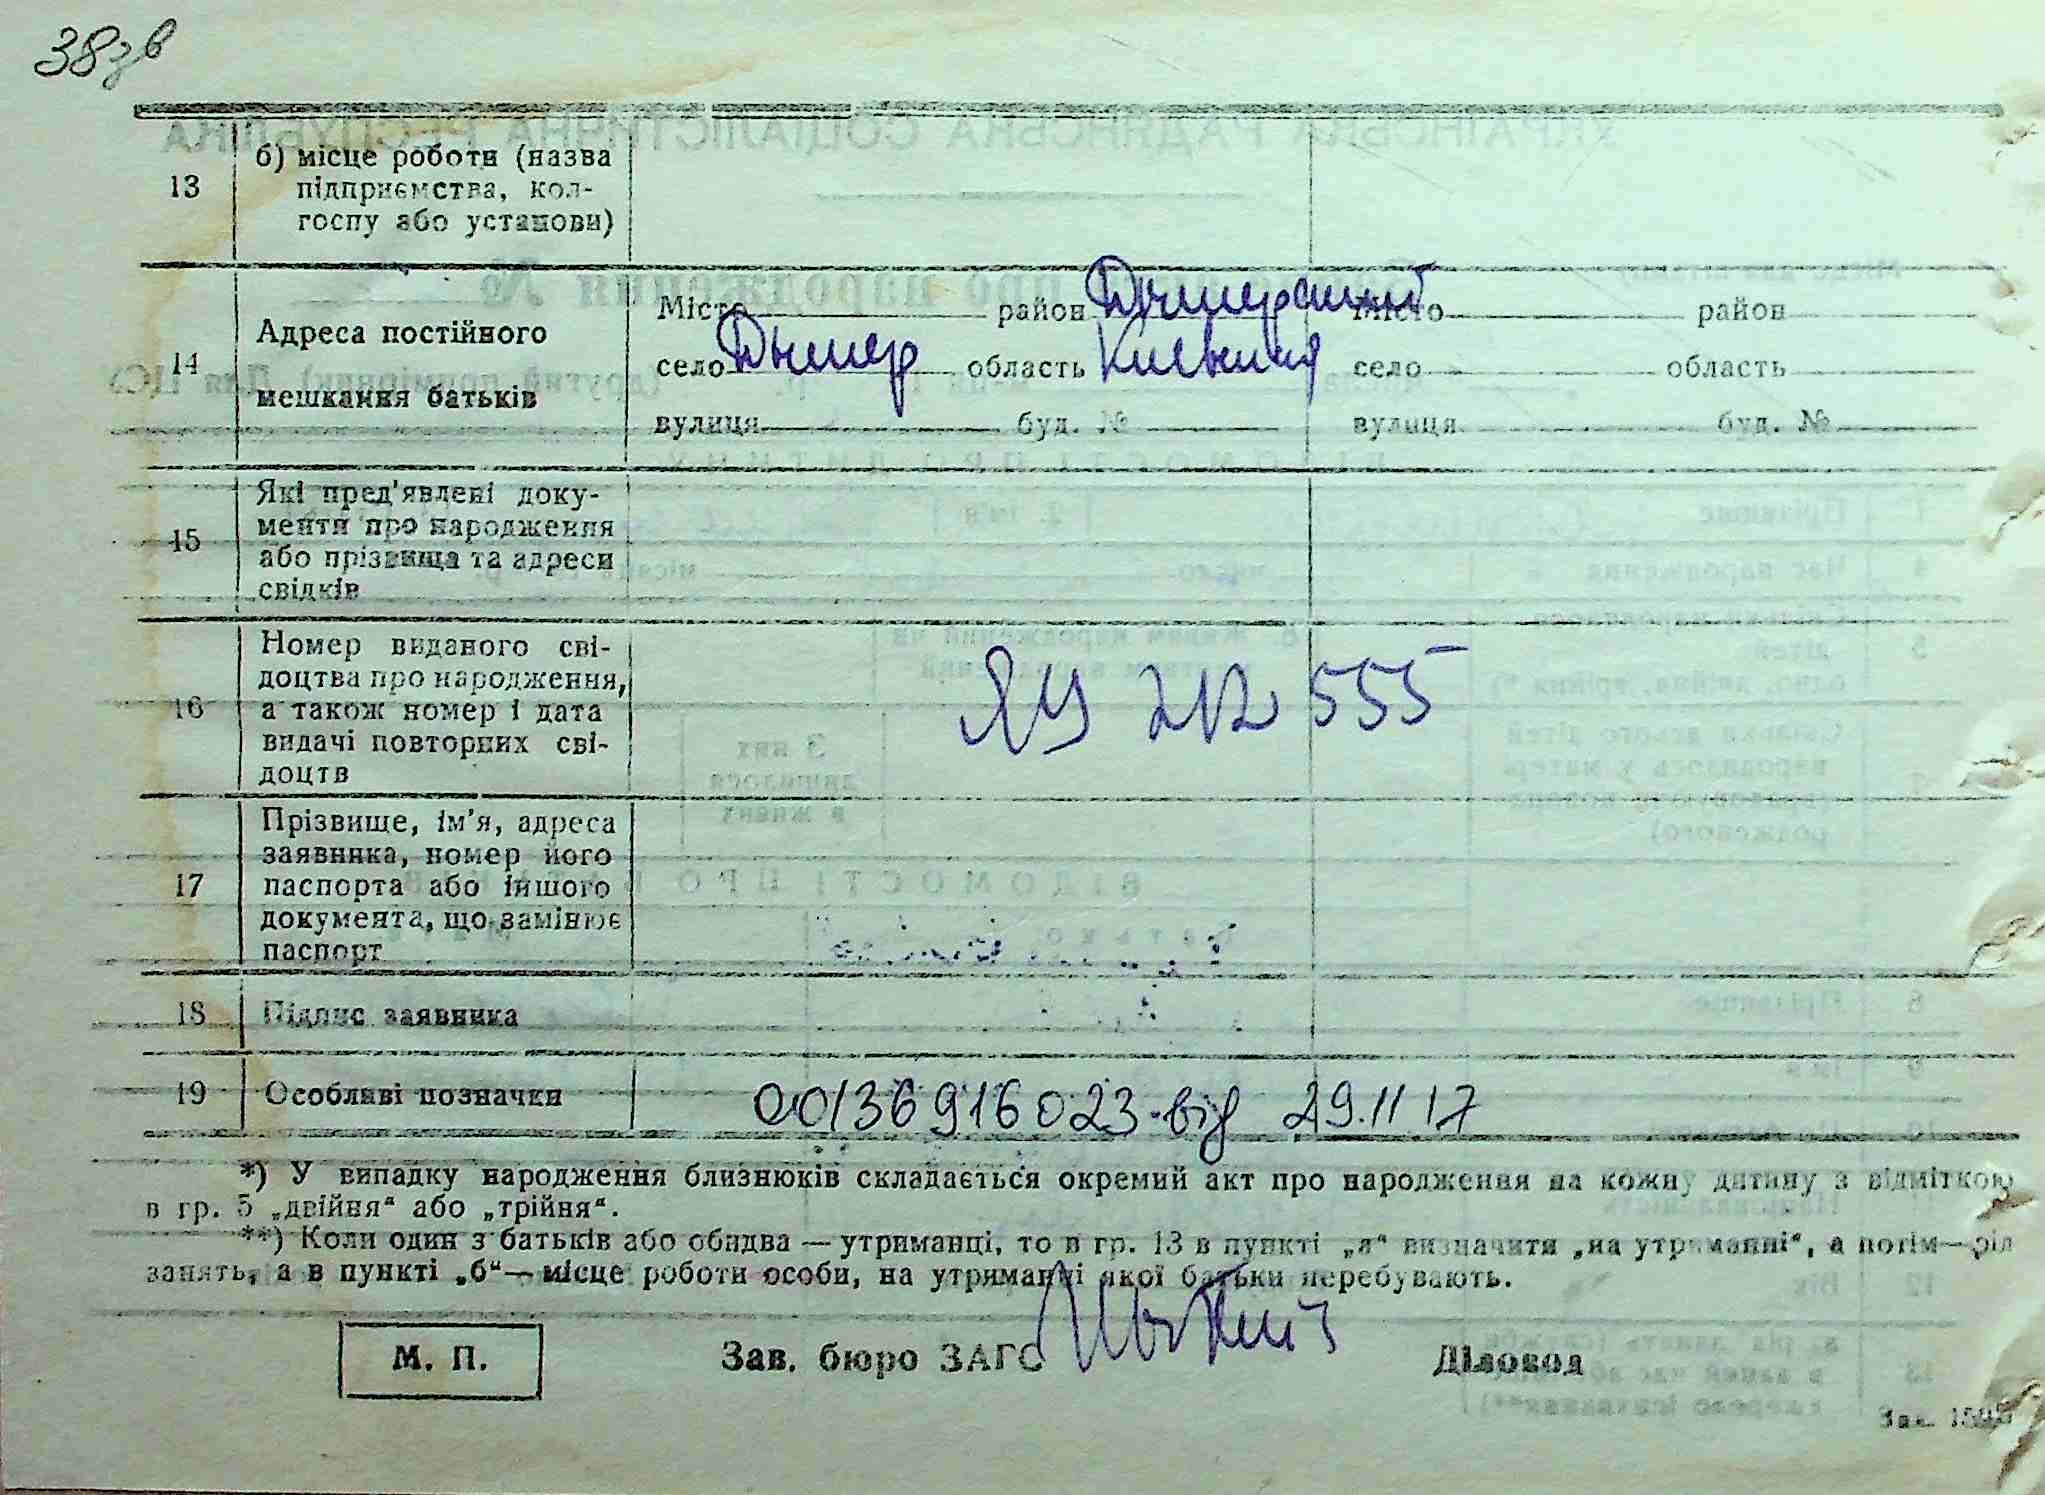 38зв
13
б) місце роботи (назва
підприємства, кол-
госпу або установи)
14
Адреса постійного
мешкання батьків
Місто район Дымерский
село Дымер область Киевская
вулиця буд. №
Місто район
село область
вулиця буд. №
15
Які пред'явлені доку-
менти про народження
або прізвища та адреси
свідків
16
Номер виданого сві-
доцтва про народження,
а також номер і дата
видачі повторних сві-
доцтв
ЯЧ 212 555
17
Прізвище, ім'я, адреса
заявника, номер його
паспорта або іншого
документа, що замінює
паспорт
18
Підпис заявника
19
Особливі позначки
00136916023 від 29.11 17
*) У випадку народження близнюків складається окремий акт про народження на кожну дитину з відміткою
в гр. 5 „двійня“ або „трійня“.
**) Коли один з батьків або обидва — утриманці, то в гр. 13 в пункті „а“ визначити „на утриманні“, а потім — рід
занять, а в пункті „б“ — місце роботи особи, на утриманні якої батьки перебувають.
М. П.
Зав. бюро ЗАГС
Діловод